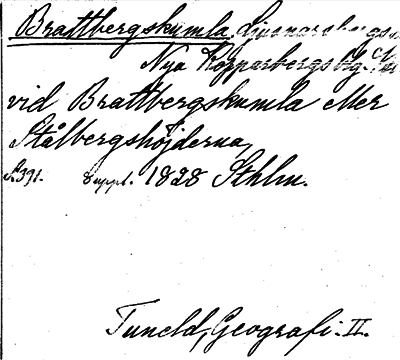 Brattbergskumla, Ljusnarsbergs
Nya Kopparbergs bg.
vid Brattbergskumla eller
Stålbergshöjderna,
s. 391. 8 uppl. 1828 Sthlm.
Tuneld, Geografi. II.